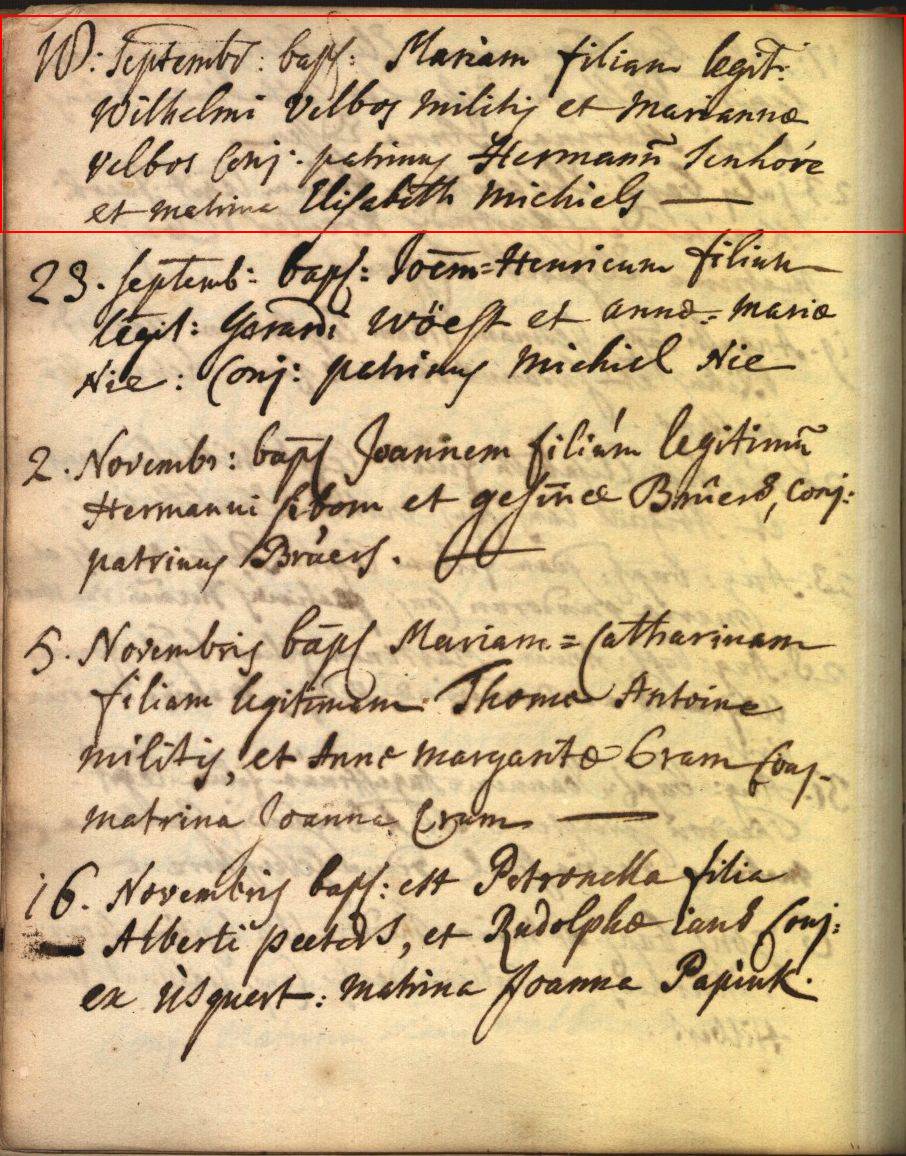 10: Septembr: bapt: Mariam filiam legit:
Wilhelmi Velbos militis et Mariannæ
Velbos Conj: patrinus Hermann̄ Senhore
et matrina Elisabeth Michiels —
23. septemb: bapt: Joēm=Henricum filium
legit: Gerardi Wöest et annæ=mariæ
Nie: Conj: patrinus Michiel Nie
2. Novembr: bapt Joannem filiúm legitimū
Hermanni sibom et gesinæ Brûers, conj:
patrinus Brúers.
5. Novembris bapt Mariam=Catharinam
filiam legitimam Thomæ Antoine
militis, et Annæ margaritæ Cram Conj.
matrina Joanna Cram —
16. Novembris bapt: est Petronella filia
Alberti peeters, et Rudolphæ ians Conj:
ex üsquert: matrina Joanna Papink.